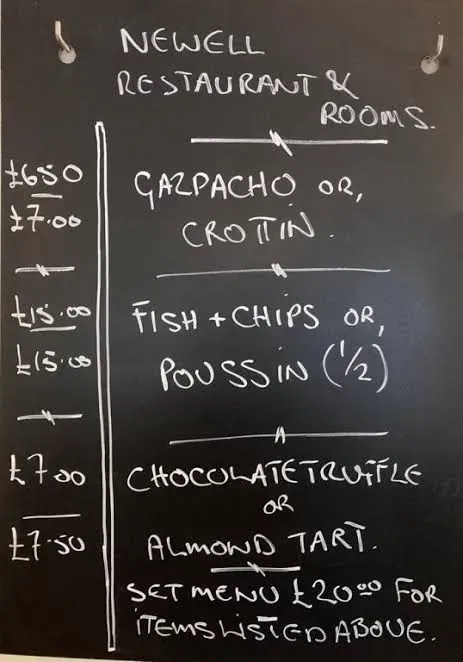 NEWELL
RESTAURANT &
ROOMS.
£6.50 GAZPACHO OR,
£7.00 CROTTIN.
£15.00 FISH + CHIPS OR,
£15.00 POUSSIN (1/2)
£7.00 CHOCOLATE TRUFFLE
OR
£7.50 ALMOND TART.
SET MENU £20.00 FOR
ITEMS LISTED ABOVE.